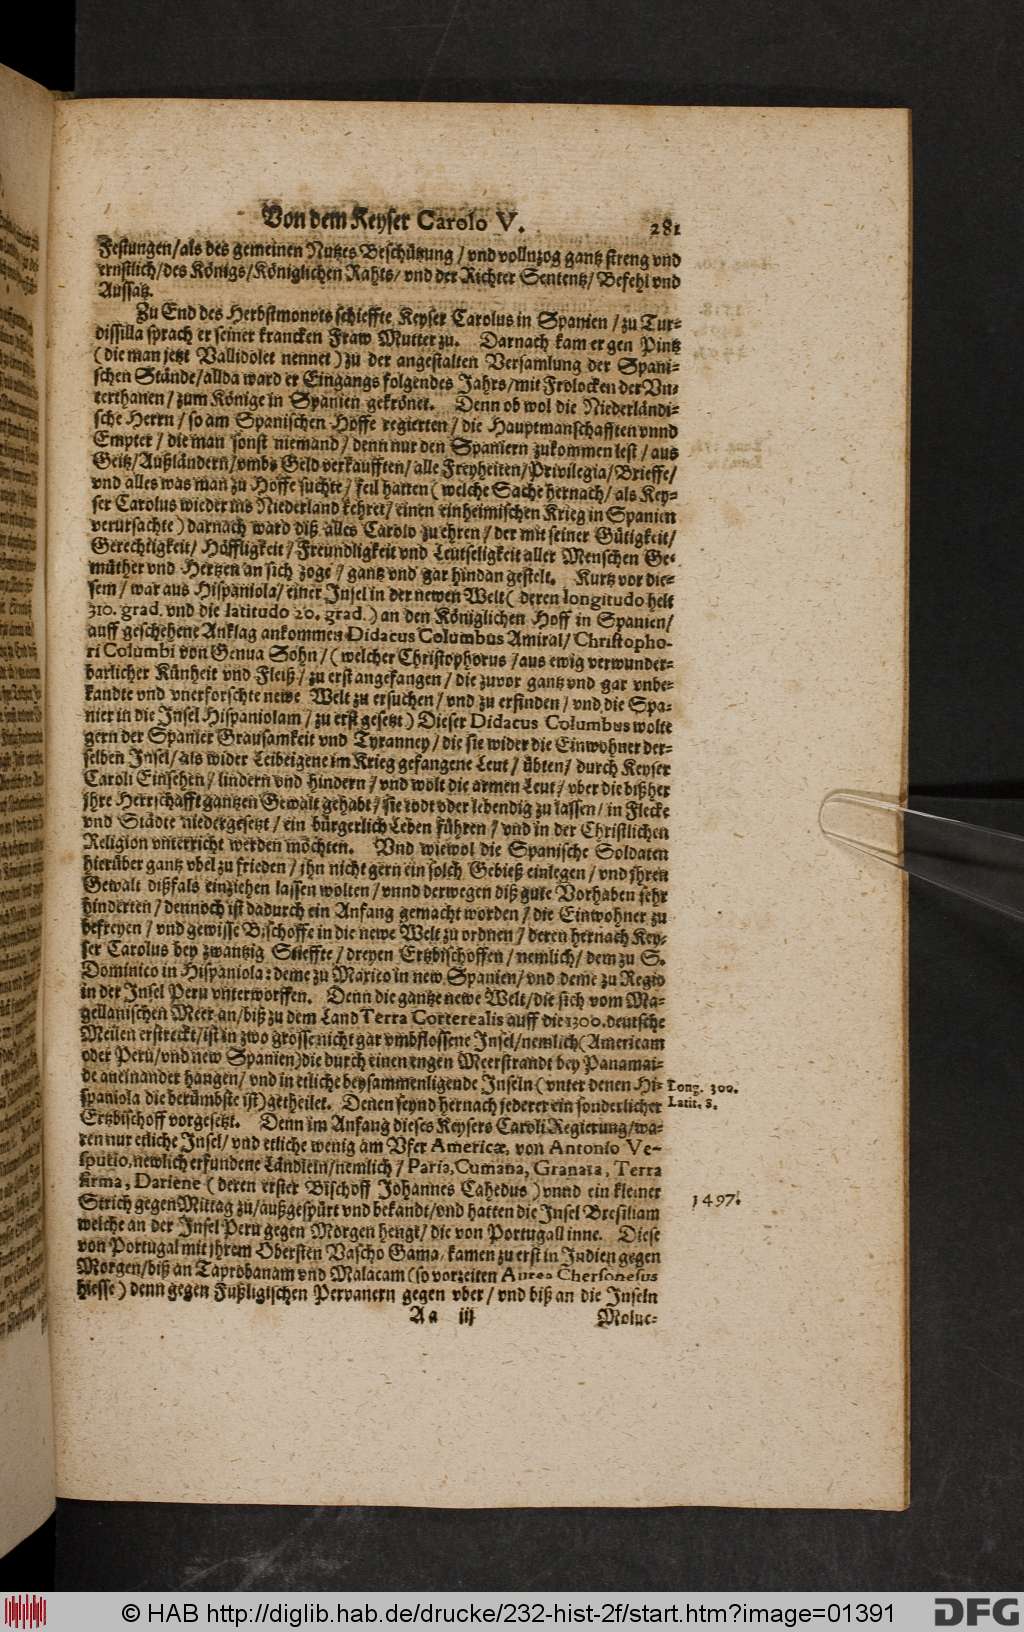 Von dem Keyser Carolo V.
281
Festungen/als des gemeinen Nutzes Beschützung / vnd vollnzog gantz streng vnd
ernstlich/des Königs/Königlichen Rahts/ vnd der Richter Sententz/ Befehl vnd
Aussatz.
Zu End des Herbstmonots schieffte Keyser Carolus in Spanien / zu Tur-
dissilla sprach er seiner krancken Fraw Mutter zu. Darnach kam er gen Pintz
(die man jetzt Vallidolet nennet) zu der angestalten Versamlung der Spani-
schen Stände/allda ward er Eingangs folgendes Jahrs/mit Frolocken der Vn-
terthanen / zum Könige in Spanien gekrönet. Denn ob wol die Niederländi-
sche Herrn / so am Spanischen Hoffe regierten / die Hauptmanschafften vnnd
Empter / die man sonst niemand / denn nur den Spaniern zukommen lest / aus
Geitz/Außländern/vmbs Geld verkaufften/alle Freyheiten/Privilegia/Brieffe/
vnd alles was man zu Hoffe suchte / feil hatten (welche Sache hernach/als Key-
ser Carolus wieder ins Niederland kehret/einen einheimischen Krieg in Spanien
verursachte) darnach ward diß alles Carolo zu ehren / der mit seiner Gütigkeit/
Gerechtigkeit/ Häffligkeit / Freundligkeit vnd Leutseligkeit aller Menschen Ge-
müther vnd Hertzen an sich zoge / gantz vnd gar hindan gestelt. Kurtz vor die-
sem / war aus Hispaniola/einer Insel in der newen Welt ( deren longitudo helt
310. grad. vnd die latitudo 20. grad.) an den Königlichen Hoff in Spanien/
auff geschehene Anklag ankommen Didacus Columbus Amiral/Christopho-
ri Columbi von Genua Sohn/ (welcher Christophorus /aus ewig verwunder-
barlicher Künheit vnd Fleiß/ zu erst angefangen / die zuvor gantz vnd gar vnbe-
kandte vnd vnerforschte newe Welt zu ersuchen / vnd zu erfinden / vnd die Spa-
nier in die Insel Hispaniolam / zu erst gesetzt) Dieser Didacus Columbus wolte
gern der Spanier Grausamkeit vnd Tyranney / die sie wider die Einwohner der-
selben Insel/als wider Leibeigene im Krieg gefangene Leut / übten/ durch Keyser
Caroli Einsehen/ lindern vnd hindern / vnd wolt die armen Leut / vber die bißher
jhre Herrschafft gantzen Gewalt gehabt / sie todt oder lebendig zu lassen / in Flecke
vnd Städte niedergesetzt / ein bürgerlich Leben führen / vnd in der Christlichen
Religion vnterricht werden möchten. Vnd wiewol die Spanische Soldaten
hierüber gantz vbel zu frieden / jhn nicht gern ein solch Gebieß einlegen / vnd jhren
Gewalt dißfals einziehen lassen wolten / vnnd derwegen diß gute Vorhaben sehr
hinderten / dennoch ist dadurch ein Anfang gemacht worden / die Einwohner zu
befreyen / vnd gewisse Bischoffe in die newe Welt zu ordnen / deren hernach Key-
ser Carolus bey zwantzig Stieffte / dreyen Ertzbischoffen / nemlich / dem zu S.
Dominico in Hispaniola: deme zu Maxico in new Spanien/vnd deme zu Regio
in der Insel Peru vnterworffen. Denn die gantze newe Welt/die sich vom Ma-
gellanischen Meer an/biß zu dem Land Terra Corterealis auff die 1300. deutsche
Meilen erstreckt/ist in zwo grosse nicht gar vmbflossene Insel/nemlich (Americam
oder Peru/vnd new Spanien) die durch einen engen Meerstrandt bey Panamai-
de aneinander hangen / vnd in etliche beysammenligende Inseln ( vnter denen Hi-
Long. 300.
spaniola die berümbste ist) getheilet. Denen seynd hernach jederer ein sonderlicher
Latit. 8.
Ertzbischoff vorgesetzt. Denn im Anfang dieses Keysers Caroli Regierung/wa-
ren nur etliche Insel/ vnd etliche wenig am Vfer Americæ, von Antonio Ve-
sputio, newlich erfundene Ländlein/nemlich / Paria, Cumana, Granata, Terra
firma, Dariene ( deren erster Bischoff Johannes Cahedus ) vnnd ein kleiner
1497.
Strich gegen Mittag zu/außgespürt vnd bekandt/vnd hatten die Insel Bresiliam
welche an der Insel Peru gegen Morgen hengt/ die von Portugall inne. Diese
von Portugal mit jhrem Obersten Vascho Gama, kamen zu erst in Indien gegen
Morgen/biß an Taprobanam vnd Malacam (so vorzeiten Aurea Chersonesus
hiesse) denn gegen Fußligischen Pervanern gegen vber / vnd biß an die Inseln
Aa iij
Moluc-
© HAB http://diglib.hab.de/drucke/232-hist-2f/start.htm?image=01391
DFG